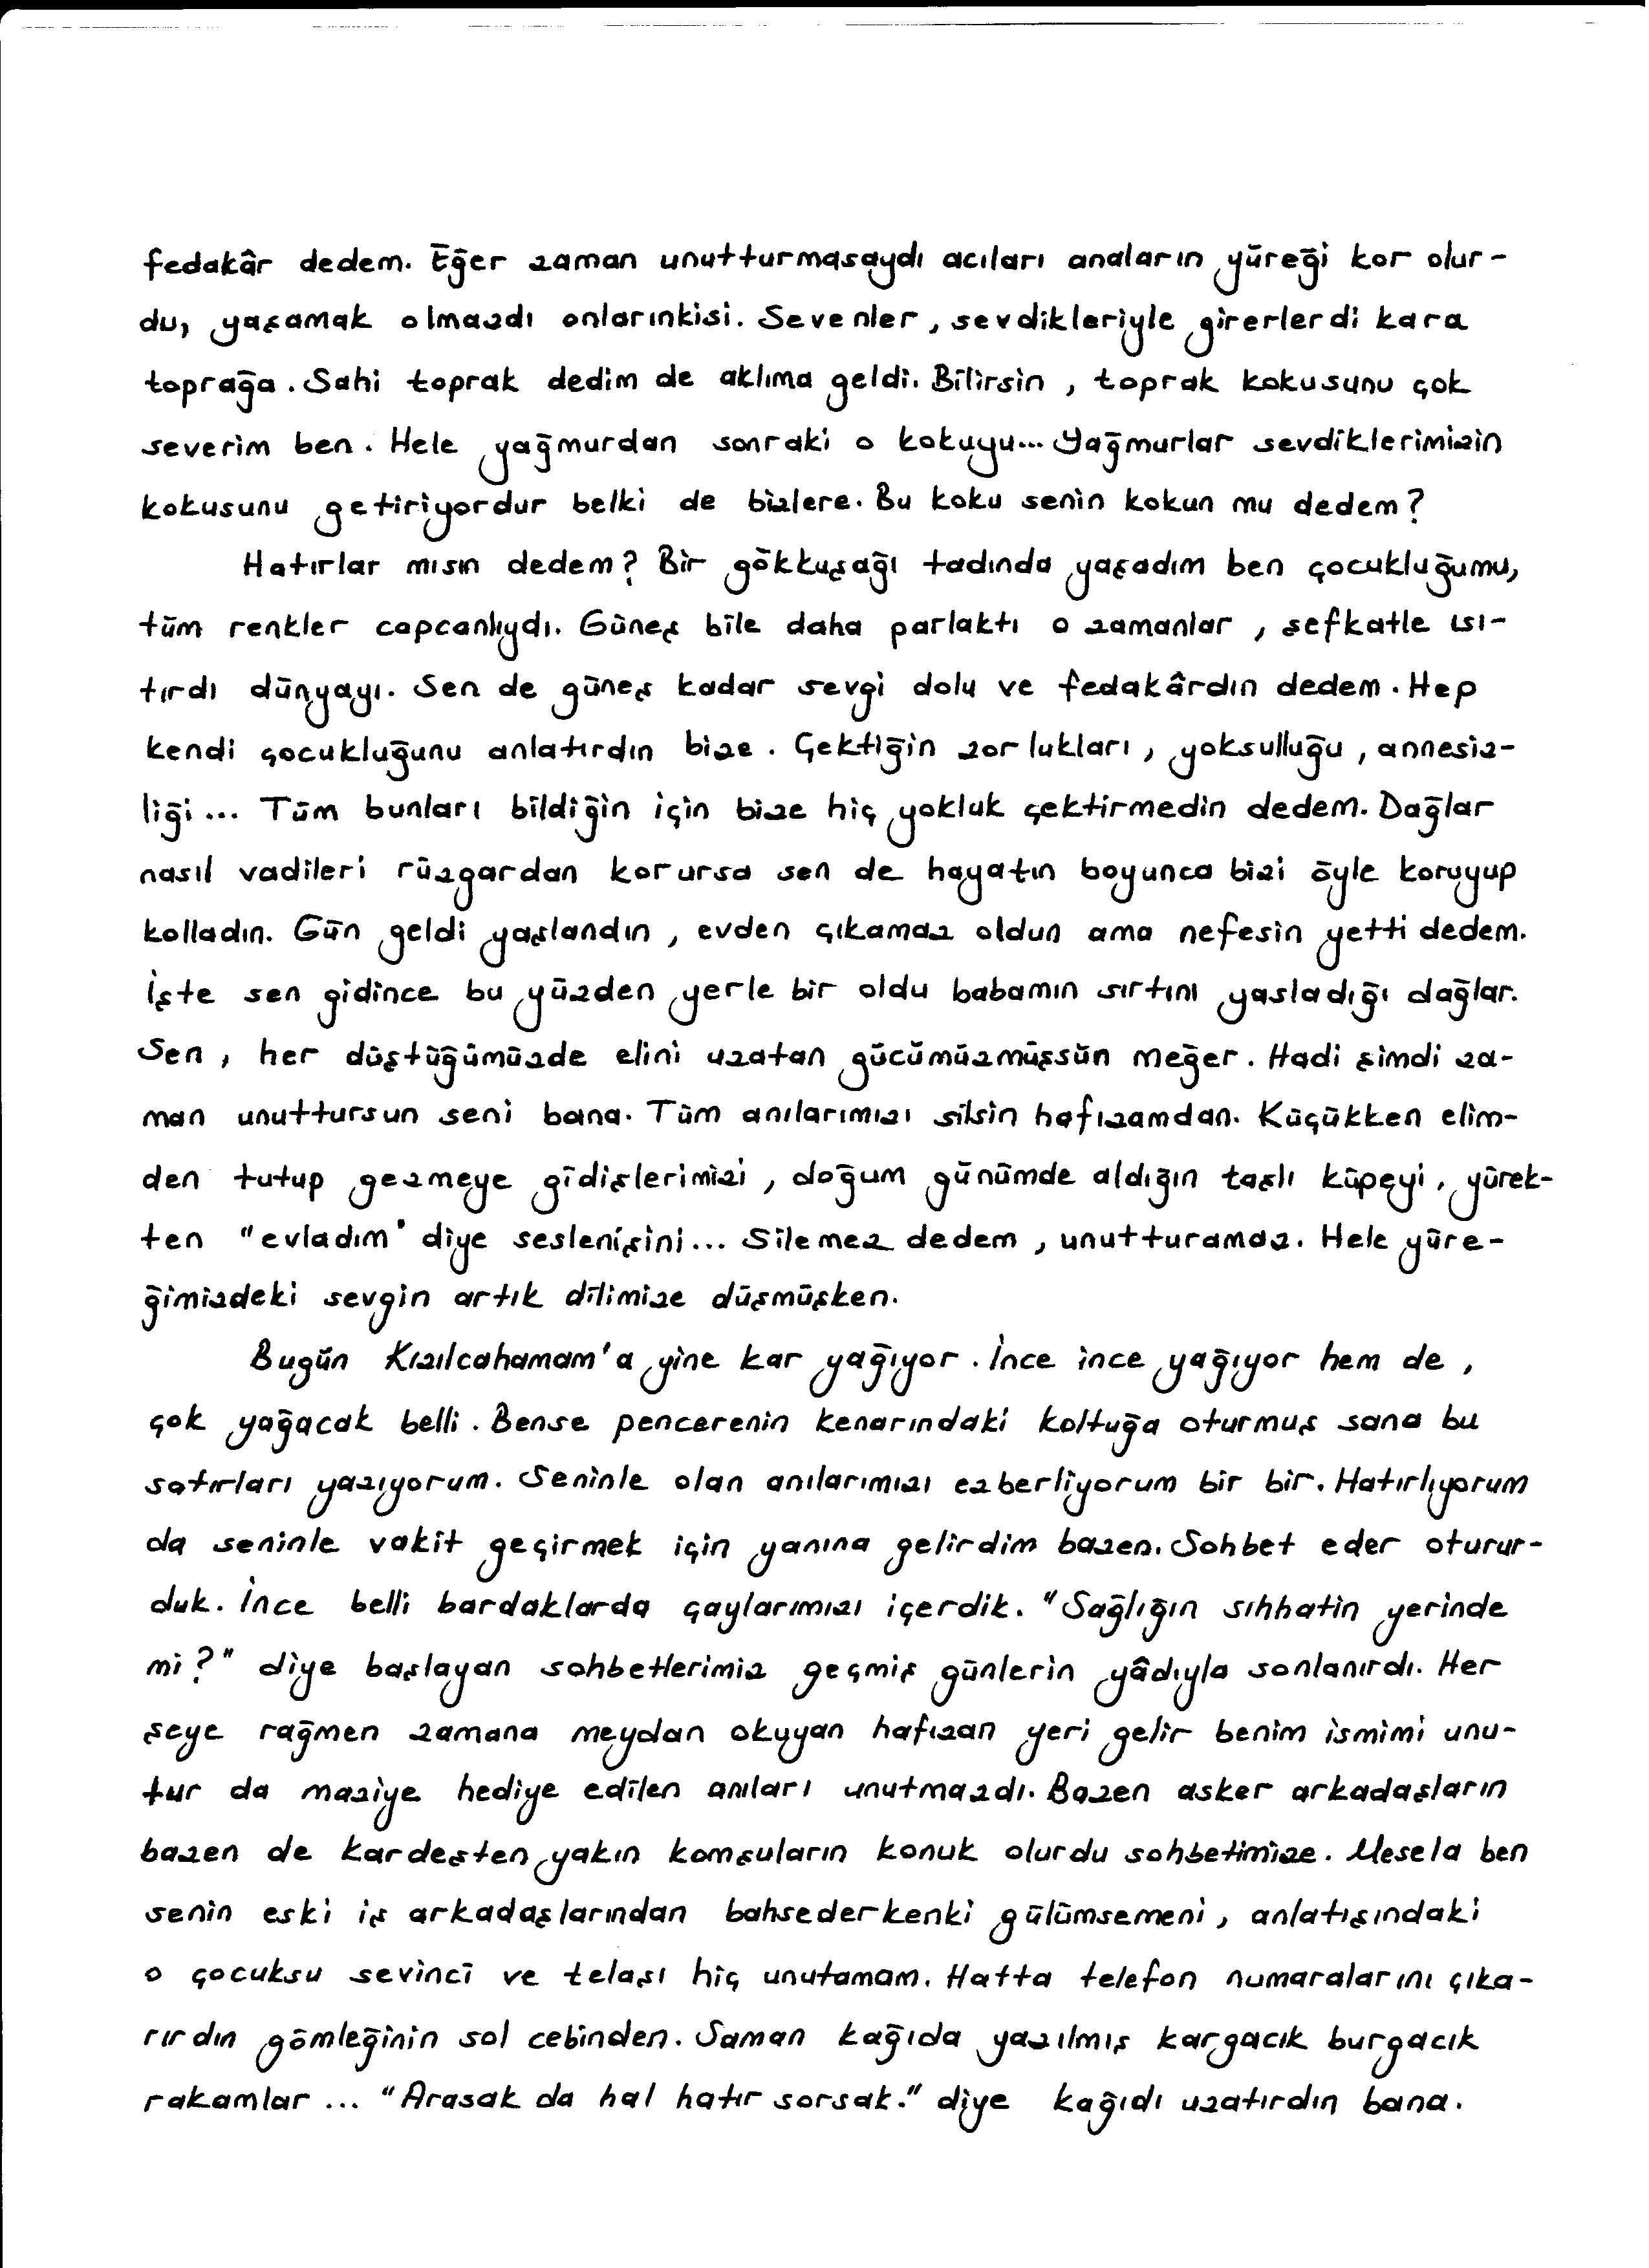 fedakâr dedem. Eğer zaman unutturmasaydı acıları anaların yüreği kor olur-
du, yaşamak olmazdı onlarınkisi. Sevenler, sevdikleriyle girerlerdi kara
toprağa. Sahi toprak dedim de aklıma geldi. Bilirsin, toprak kokusunu çok
severim ben. Hele yağmurdan sonraki o kokuyu... Yağmurlar sevdiklerimizin
kokusunu getiriyordur belki de bizlere. Bu koku senin kokun mu dedem?
Hatırlar mısın dedem? Bir gökkuşağı tadında yaşadım ben çocukluğumu,
tüm renkler capcanlıydı. Güneş bile daha parlaktı o zamanlar, şefkatle ısı-
tırdı dünyayı. Sen de güneş kadar sevgi dolu ve fedakârdın dedem. Hep
kendi çocukluğunu anlatırdın bize. Çektiğin zorlukları, yoksulluğu, annesiz-
liği... Tüm bunları bildiğin için bize hiç yokluk çektirmedin dedem. Dağlar
nasıl vadileri rüzgardan korursa sen de hayatın boyunca bizi öyle koruyup
kolladın. Gün geldi yaşlandın, evden çıkamaz oldun ama nefesin yetti dedem.
İşte sen gidince bu yüzden yerle bir oldu babamın sırtını yasladığı dağlar.
Sen, her düştüğümüzde elini uzatan gücümüzmüşsün meğer. Hadi şimdi za-
man unuttursun seni bana. Tüm anılarımızı silsin hafızamdan. Küçükken elim-
den tutup gezmeye gidişlerimizi, doğum günümde aldığın taşlı küpeyi, yürek-
ten "evladım" diye seslenişini... Silemez dedem, unutturamaz. Hele yüre-
ğimizdeki sevgin artık dilimize düşmüşken.
Bugün Kızılcahamam'a yine kar yağıyor. İnce ince yağıyor hem de,
çok yağacak belli. Bense pencerenin kenarındaki koltuğa oturmuş sana bu
satırları yazıyorum. Seninle olan anılarımızı ezberliyorum bir bir. Hatırlıyorum
da seninle vakit geçirmek için yanına gelirdim bazen. Sohbet eder oturur-
duk. İnce belli bardaklarda çaylarımızı içerdik. "Sağlığın sıhhatin yerinde
mi?" diye başlayan sohbetlerimiz geçmiş günlerin yâdıyla sonlanırdı. Her
şeye rağmen zamana meydan okuyan hafızan yeri gelir benim ismimi unu-
tur da maziye hediye edilen anıları unutmazdı. Bazen asker arkadaşların
bazen de kardeşten yakın komşuların konuk olurdu sohbetimize. Mesela ben
senin eski iş arkadaşlarından bahsederkenki gülümsemeni, anlatışındaki
o çocuksu sevinci ve telaşı hiç unutamam. Hatta telefon numaralarını çıka-
rırdın gömleğinin sol cebinden. Saman kağıda yazılmış kargacık burgacık
rakamlar... "Arasak da hal hatır sorsak." diye kağıdı uzatırdın bana.